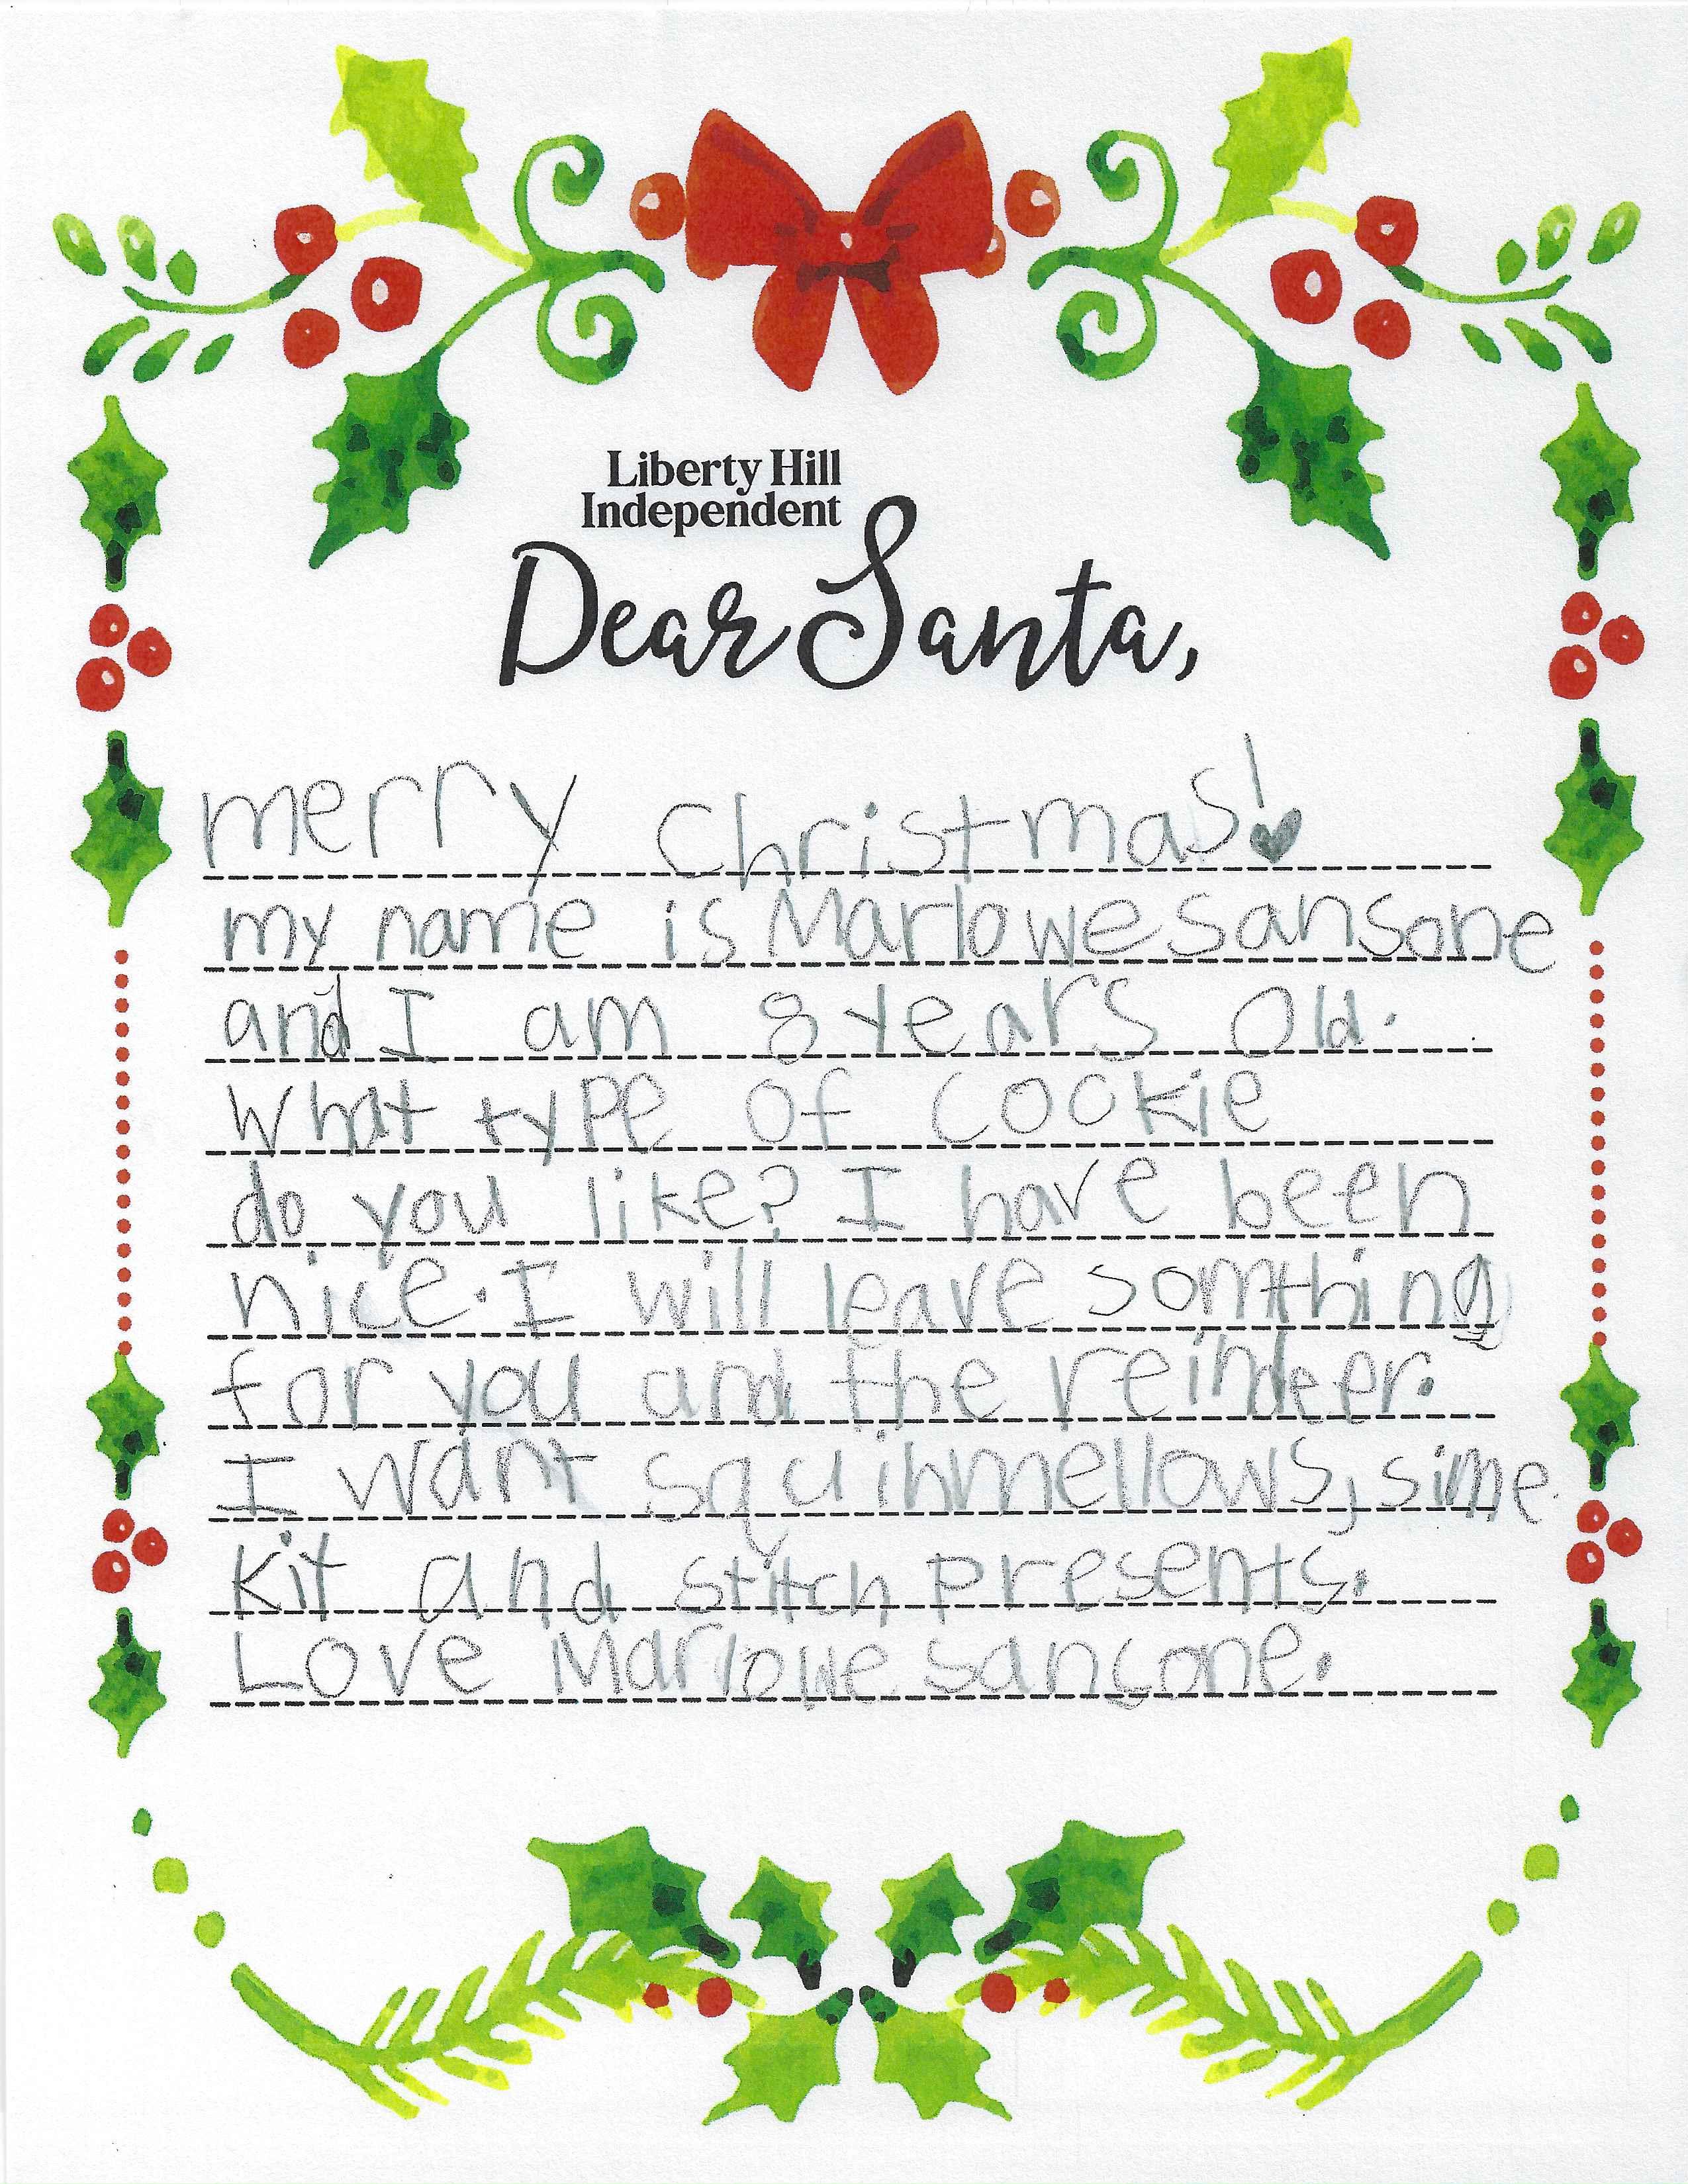 Liberty Hill
Independent
Dear Santa,
merry christmas!
my name is Marlowe sansone
and I am 8 years old.
What type of cookie
do you like? I have been
nice. I will leave somthing
for you and the reindeer.
I want squihmellows, sime
kit and stitch presents.
Love Marlowe sansone.